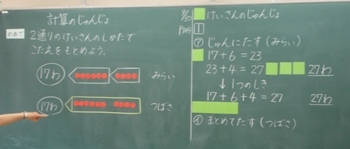 計算のじゅんじょ
めあて 2通りのけいさんのしかたで
こたえをもとめよう。
17わ みらい
17わ つばさ
けいさんのじゅんじょ
①
⑦ じゅんにたす(みらい)
17+6=23
23+4=27 27わ
↓1つのしき
17+6+4=27 27わ
まとめてたす(つばさ)